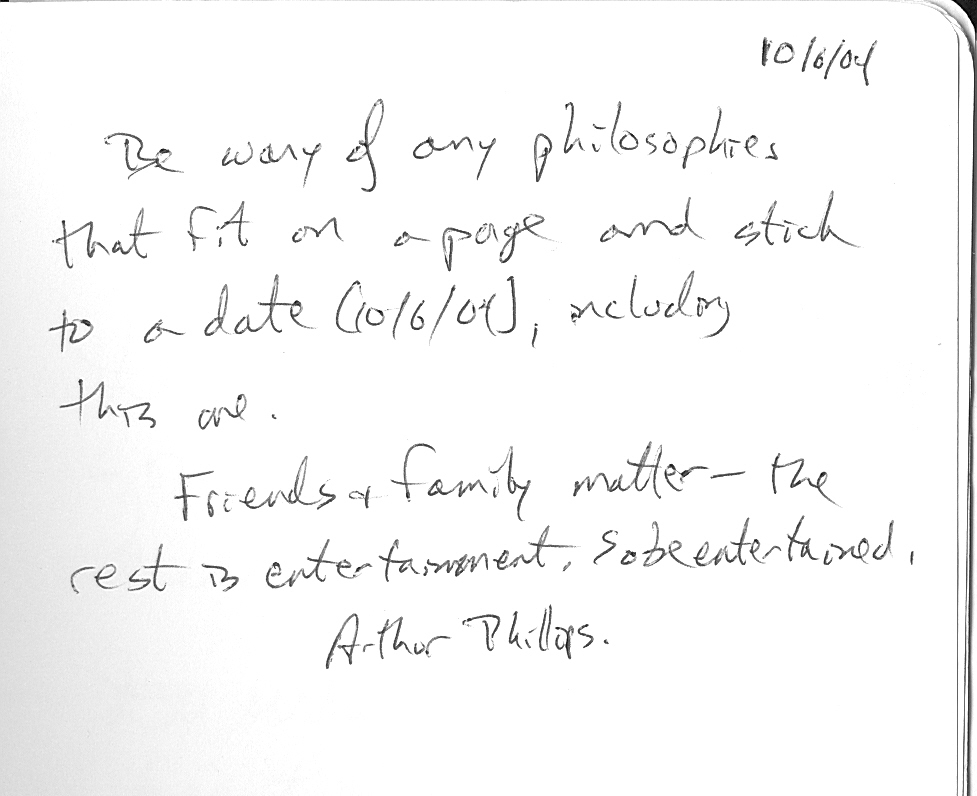 10/6/04
Be wary of any philosophies
that fit on a page and stick
to a date (10/6/04), including
this one.
Friends & family matter — the
rest is entertainment. So be entertained.
Arthur Phillips.